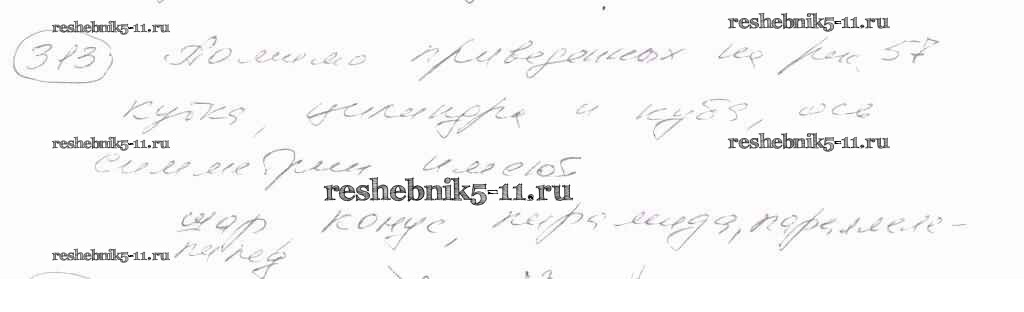 reshebnik5-11.ru
reshebnik5-11.ru
313 Помимо приведенных на рис. 57
кубка, цилиндра и куба, оси
reshebnik5-11.ru
reshebnik5-11.ru
симметрии имеют
reshebnik5-11.ru
шар, конус, пирамида, параллеле-
пипед
reshebnik5-11.ru